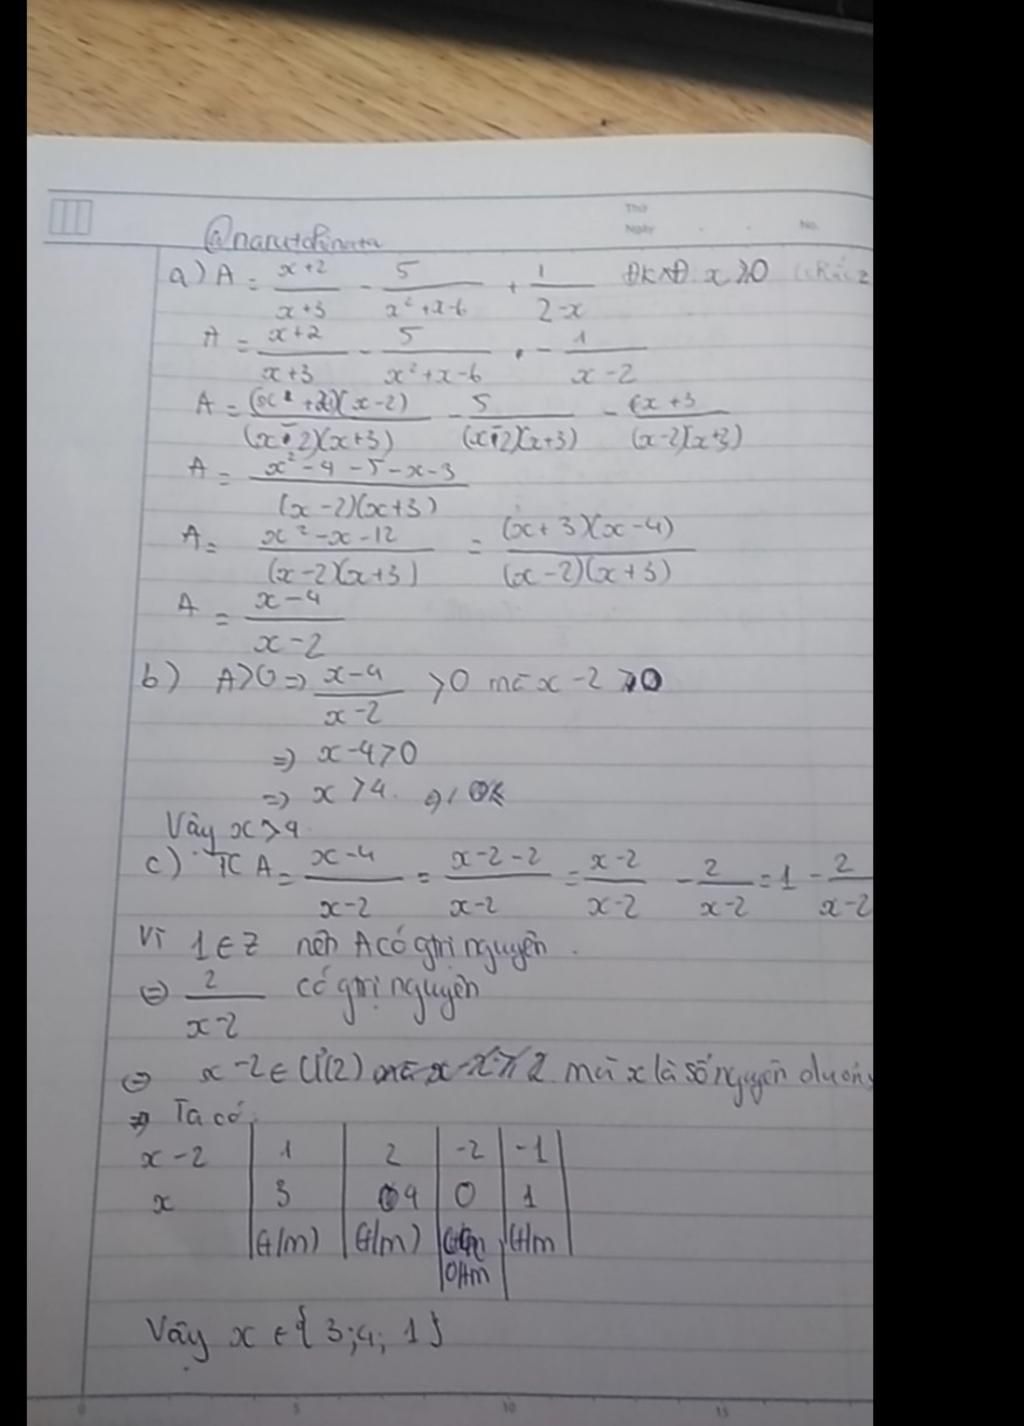 Thứ
Ngày No.
a) A = \frac{x+2}{x+3} - \frac{5}{x²+x-6} + \frac{1}{2-x} ĐKXĐ: x ≥ 0
A = \frac{x+2}{x+3} - \frac{5}{x²+x-6} - \frac{1}{x-2}
A = \frac{(x+2)(x-2)}{(x-2)(x+3)} - \frac{5}{(x-2)(x+3)} - \frac{x+3}{(x-2)(x+3)}
A = \frac{x²-4-5-x-3}{(x-2)(x+3)}
A = \frac{x²-x-12}{(x-2)(x+3)} = \frac{(x+3)(x-4)}{(x-2)(x+3)}
A = \frac{x-4}{x-2}
b) A>0 => \frac{x-4}{x-2} >0 mà x-2 ≥0
=> x-4>0
=> x>4.
Vậy x>4
c) TC A = \frac{x-4}{x-2} = \frac{x-2-2}{x-2} = \frac{x-2}{x-2} - \frac{2}{x-2} = 1 - \frac{2}{x-2}
Vì 1∈Z nên A có gtrị nguyên.
<=> \frac{2}{x-2} có gtrị nguyên
<=> x-2∈Ư(2) mà x là số nguyên dương
=> Ta có
x-2 | 1 | 2 | -2 | -1 |
x | 3 | 4 | 0 | 1 |
| (t/m) | (t/m) | | (t/m |
Vậy x∈{3;4;1}
0 5 10 15